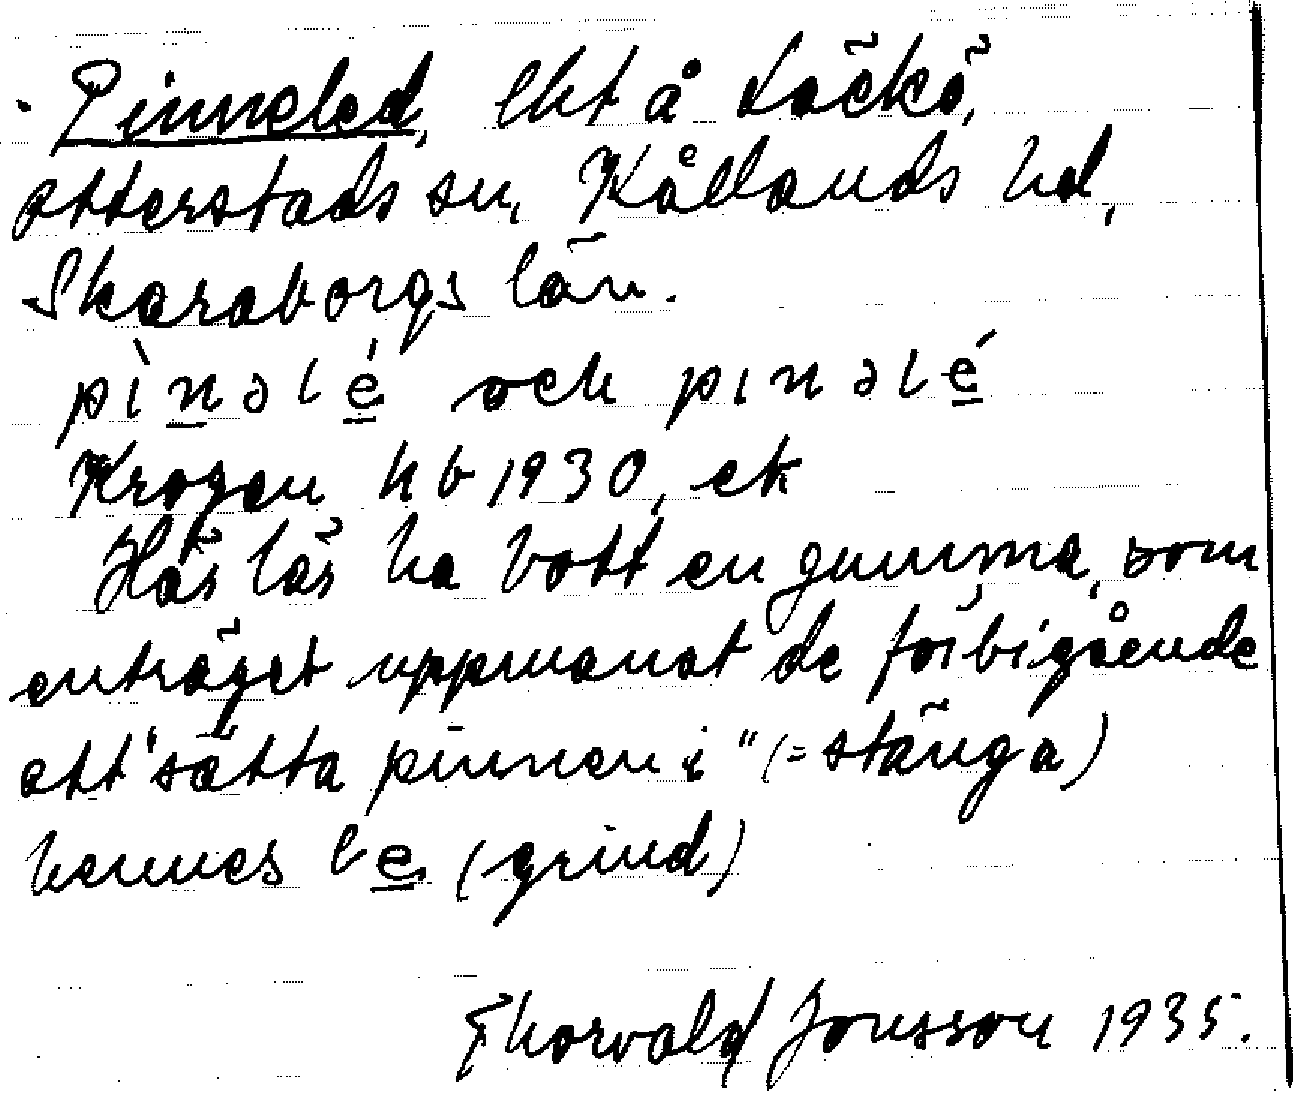 Pinneled, lht å Läckö,
Otterstads sn, Kållands hd,
Skaraborgs län.
pìnəlé och pınəlé
Krogen hb 1930, ek
Här lär ha bott en gumma, som
enträget uppmanat de förbigående
att "sätta pinnen i" (= stänga)
hennes le (grind)
Thorvald Jonsson 1935.